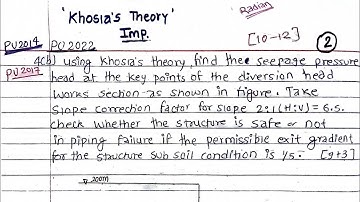 'Khosla's Theory'
Imp.
Radian
[10-12]
2
PU2014 PU2022
PU2017
4(b) Using Khosla's theory, find the seepage pressure
head at the key points of the diversion head
works section as shown in figure. Take
slope correction factor for slope 2:1(H:V) = 6.5.
check whether the structure is safe or not
in piping failure if the permissible exit gradient
for the structure sub soil condition is 1/5. [9+3]
200m